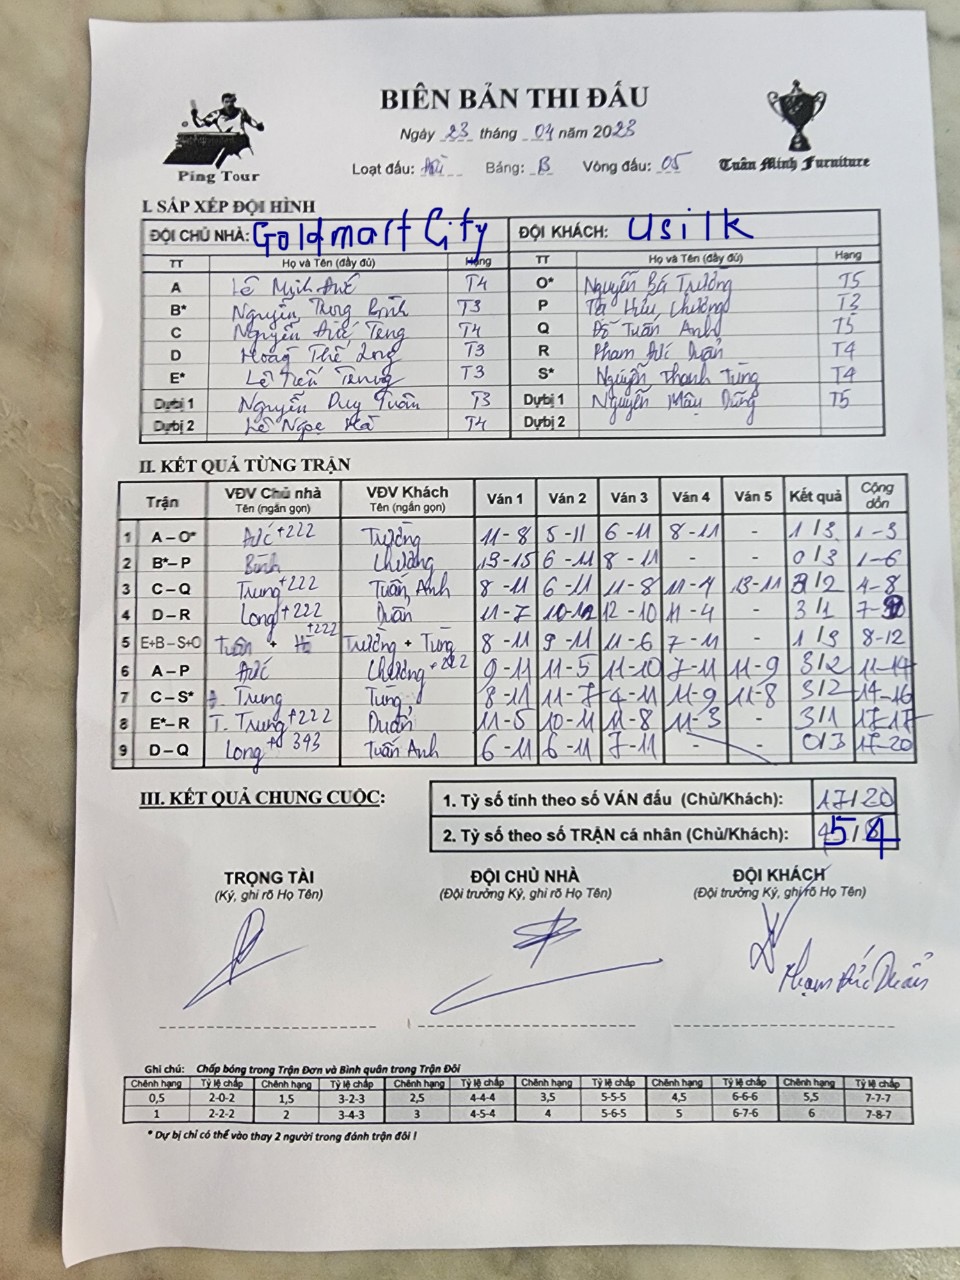 BIÊN BẢN THI ĐẤU
Ngày 23 tháng 04 năm 2023
Ping Tour
Loạt đấu: Bảng: B Vòng đấu: 05
Tuấn Minh Furniture
I. SẮP XẾP ĐỘI HÌNH
ĐỘI CHỦ NHÀ: Goldmart City ĐỘI KHÁCH: Usilk
TT Họ và Tên (đầy đủ) Hạng TT Họ và Tên (đầy đủ) Hạng
A Lê Minh Đức T4 O* Nguyễn Bá Trưởng T5
B* Nguyễn Trung Bình T3 P Tạ Hữu Chương
C Nguyễn Đức T4 Q Đỗ Tuấn Anh T5
D Hoàng Thế Long T3 R Phạm Đức Duẩn T4
E* Lê Tiến T3 S* Nguyễn Thanh Tùng T4
Dự bị 1 Nguyễn Duy Tuân T3 Dự bị 1 Nguyễn Mậu Dũng T5
Dự bị 2 Lê Ngọc Hà T4 Dự bị 2
II. KẾT QUẢ TỪNG TRẬN
Trận VĐV Chủ nhà Tên (ngắn gọn) VĐV Khách Tên (ngắn gọn) Ván 1 Ván 2 Ván 3 Ván 4 Ván 5 Kết quả Cộng dồn
1 A – O* Đức +222 Trưởng 11 - 8 5 - 11 6 - 11 8 - 11 - 1 / 3 1 - 3
2 B* – P Bình Chương 13 - 15 6 - 11 8 - 11 - - 0 / 3 1 - 6
3 C – Q Trung +222 Tuấn Anh 8 - 11 6 - 11 11 - 8 11 - 4 13 - 11 3 / 2 4 - 8
4 D – R Long +222 Duẩn 11 - 7 10 - 12 12 - 10 11 - 4 - 3 / 1 7 - 9
5 E+B – S+O Tuân + Hà +222 Trưởng + Tùng 8 - 11 9 - 11 11 - 6 7 - 11 - 1 / 3 8 - 12
6 A – P Đức Chương +222 9 - 11 11 - 5 11 - 10 7 - 11 11 - 9 3 / 2 11 - 14
7 C – S* Trung Tùng 8 - 11 11 - 7 4 - 11 11 - 9 11 - 8 3 / 2 14 - 16
8 E* – R T. Trung +222 Duẩn 11 - 5 10 - 11 11 - 8 11 - 3 - 3 / 1 17 - 17
9 D – Q Long +343 Tuấn Anh 6 - 11 6 - 11 7 - 11 - - 0 / 3 17 - 20
III. KẾT QUẢ CHUNG CUỘC:
1. Tỷ số tính theo số VÁN đấu (Chủ/Khách): 17 / 20
2. Tỷ số theo số TRẬN cá nhân (Chủ/Khách): 5 / 4
TRỌNG TÀI ĐỘI CHỦ NHÀ ĐỘI KHÁCH
(Ký, ghi rõ Họ Tên) (Đội trưởng Ký, ghi rõ Họ Tên) (Đội trưởng Ký, ghi rõ Họ Tên)
Phạm Đức Duẩn
Ghi chú: Chấp bóng trong Trận Đơn và Bình quân trong Trận Đôi
Chênh hạng Tỷ lệ chấp Chênh hạng Tỷ lệ chấp Chênh hạng Tỷ lệ chấp Chênh hạng Tỷ lệ chấp Chênh hạng Tỷ lệ chấp Chênh hạng Tỷ lệ chấp
0,5 2-0-2 1,5 3-2-3 2,5 4-4-4 3,5 5-5-5 4,5 6-6-6 5,5 7-7-7
1 2-2-2 2 3-4-3 3 4-5-4 4 5-6-5 5 6-7-6 6 7-8-7
* Dự bị chỉ có thể vào thay 2 người trong đánh trận đôi !